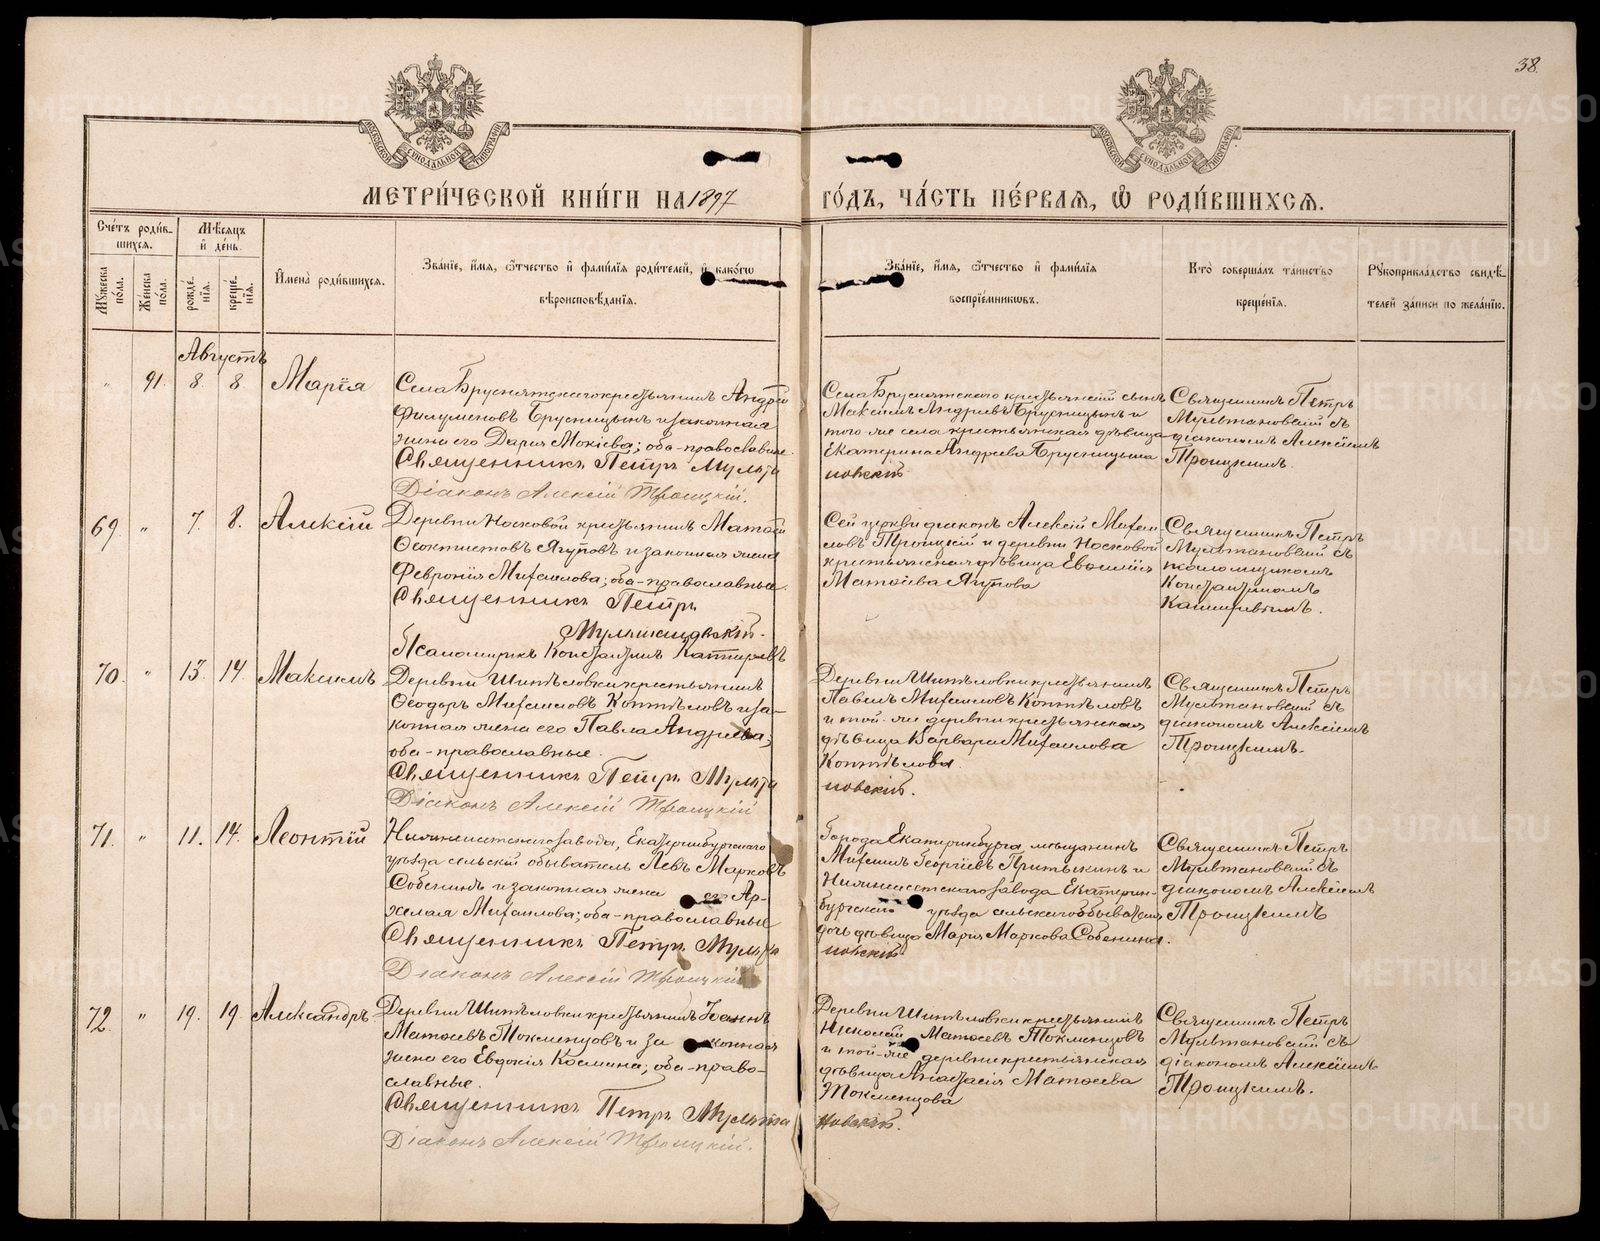 38.
МОСКОВСКОЙ СѴНОДАЛЬНОЙ ТИПОГРАФІИ
МОСКОВСКОЙ СѴНОДАЛЬНОЙ ТИПОГРАФІИ
МЕТРИ́ЧЕСКОЙ КНИ́ГИ НА 1897 ГО́ДЪ, ЧА́СТЬ ПЕ́РВАЯ, Ѡ РОДИ́ВШИХСЯ.
Сче́тъ роди́вшихся.
Мужеска по́ла.
Же́нска по́ла.
Мѣ́сяцъ и де́нь.
рожде́нія.
креще́нія.
Имена̀ роди́вшихся.
Зва́ніе, и́мя, ѻ́тчество и фами́лія роди́телей, и како́гѡ
вѣроисповѣ́данія.
Зва́ніе, и́мя, ѻ́тчество и фами́лія
воспріе́мниковъ.
Кто̀ соверша́лъ та́инство
креще́нія.
Рукоприкла́дство свидѣ́телей за́писи по жела́нію.
Августъ
" 91. 8. 8 Марія
Села Бруснятскаго крестьянинъ Андрей
Филумоновъ Брусницынъ и законная
жена его Дарія Мокіева; оба православные.
Священникъ Петръ Мульта
новскій.
Діаконъ Алексій Троицкій.
Села Бруснятского крестьянскій сынъ
Максимъ Андреевъ Брусницынъ и
того-же села крестьянская дѣвица
Екатерина Андреева Брусницына
Священникъ Петръ
Мультановскій съ
діакономъ Алексіемъ
Троицкимъ.
69. " 7. 8. Алексій
Деревни Носковой крестьянинъ Матвѣй
Ѳеоктистовъ Ягуповъ и законная жена
Февронія Михаилова; оба-православные.
Священникъ Петръ
Мультановскій.
Псаломщикъ Константинъ
Сей церкви діаконъ Алексій Михаиловъ Троицкій и деревни Носковой
крестьянская дѣвица Евѳимія
Матвѣева Ягупова
Священникъ Петръ
Мультановскій съ
псаломщикомъ
Константиномъ
70. " 13. 14. Максимъ
Деревни Шипѣловки крестьянинъ
Ѳеодоръ Михаиловъ Коптѣловъ и законная жена его Павла Андреева;
оба-православные.
Священникъ Петръ Мульта
новскій.
Діаконъ Алексій Троицкій
Деревни Шипѣловки крестьянинъ
Павелъ Михаиловъ Коптѣловъ
и той-же деревни крестьянская
дѣвица Варвара Михаилова
Коптѣлова
Священникъ Петръ
Мультановскій съ
діакономъ Алексіемъ
Троицкимъ.
71. " 11. 14. Леонтій
Нижнеисетскаго завода, Екатеринбургскаго
уѣзда сельскій обыватель Левъ Марковъ
Собенинъ и законная жена его Ангелая Михаилова; оба-православные
Священникъ Петръ Мульта
новскій.
Діаконъ Алексій Троицкій
Города Екатеринбурга мѣщанинъ
Михаилъ Георгіевъ и
Нижнеисетскаго завода Екатеринбургскаго уѣзда сельскаго обывателя
дочь дѣвица Марія Маркова Собенина.
Священникъ Петръ
Мультановскій съ
діакономъ Алексіемъ
Троицкимъ
72. " 19. 19. Александръ
Деревни Шипѣловки крестьянинъ Іоаннъ
Матвѣевъ Токменцовъ и законная
жена его Евдокія Космина; оба-православные.
Священникъ Петръ Мульта
новскій.
Діаконъ Алексій Троицкій.
Деревни Шипѣловки крестьянинъ
Николай Матвѣевъ Токменцовъ
и той-же деревни крестьянская
дѣвица Анастасія Матвѣева
Токменцова
Священникъ Петръ
Мультановскій съ
діакономъ Алексіемъ
Троицкимъ.
METRIKI.GASO-URAL.RU